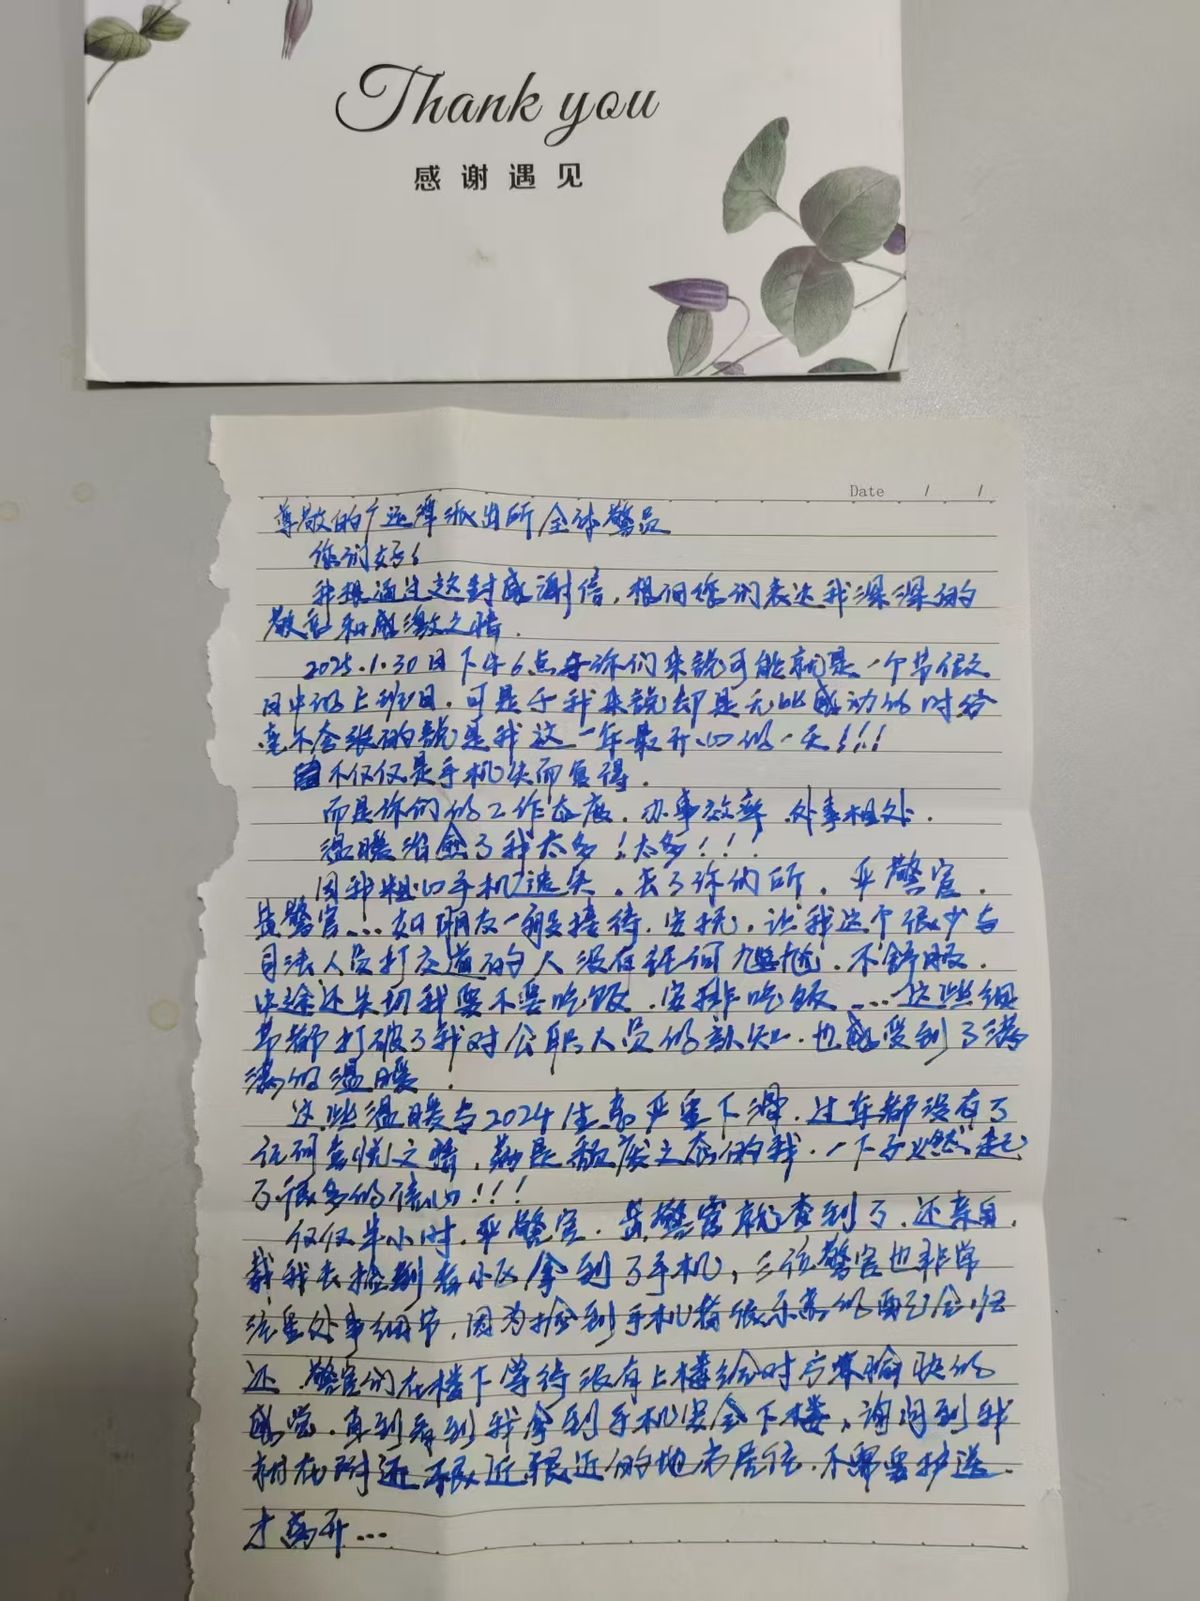 Thank you
感谢遇见
Date / /
尊敬的广运潭派出所全体警员
你们好！
我想通过这封感谢信，想向您们表达我深深的
敬意和感激之情．
2025.1.30日下午6点于你们来说可能就是一个节假
日中的上班日．可是于我来说却是无比感动的时分
毫不夸张的说是我这一年最开心的一天！！！
不仅仅是手机失而复得．
而是你们的工作态度．办事效率．处事相处．
温暖治愈了我太多！太多！！！
因我粗心手机遗失．去了你们所．严警官．
黄警官……如朋友一般接待．安抚，让我这个很少与
司法人员打交道的人没有任何尴尬．不舒服．
中途还关切我要不要吃饭．安排吃饭……这些细
节都打破了我对公职人员的认知．也感受到了满
满的温暖！
这些温暖与2024生意严重下滑．过年都没有了
任何喜悦之情，满是颓废之态的我．一下子燃起
了很多的信心！！！
仅仅半小时．严警官．黄警官就查到了．还亲自
载我去捡到者小区拿到了手机，三位警官也非常
注重处事细节．因为捡到手机者很乐意的配合归
还．警官们在楼下等待没有上楼给对方不愉快的
感觉．直到看到我拿到手机安全下楼，询问到我
就在附近很近很近的地方居住．不需要护送．
才离开…